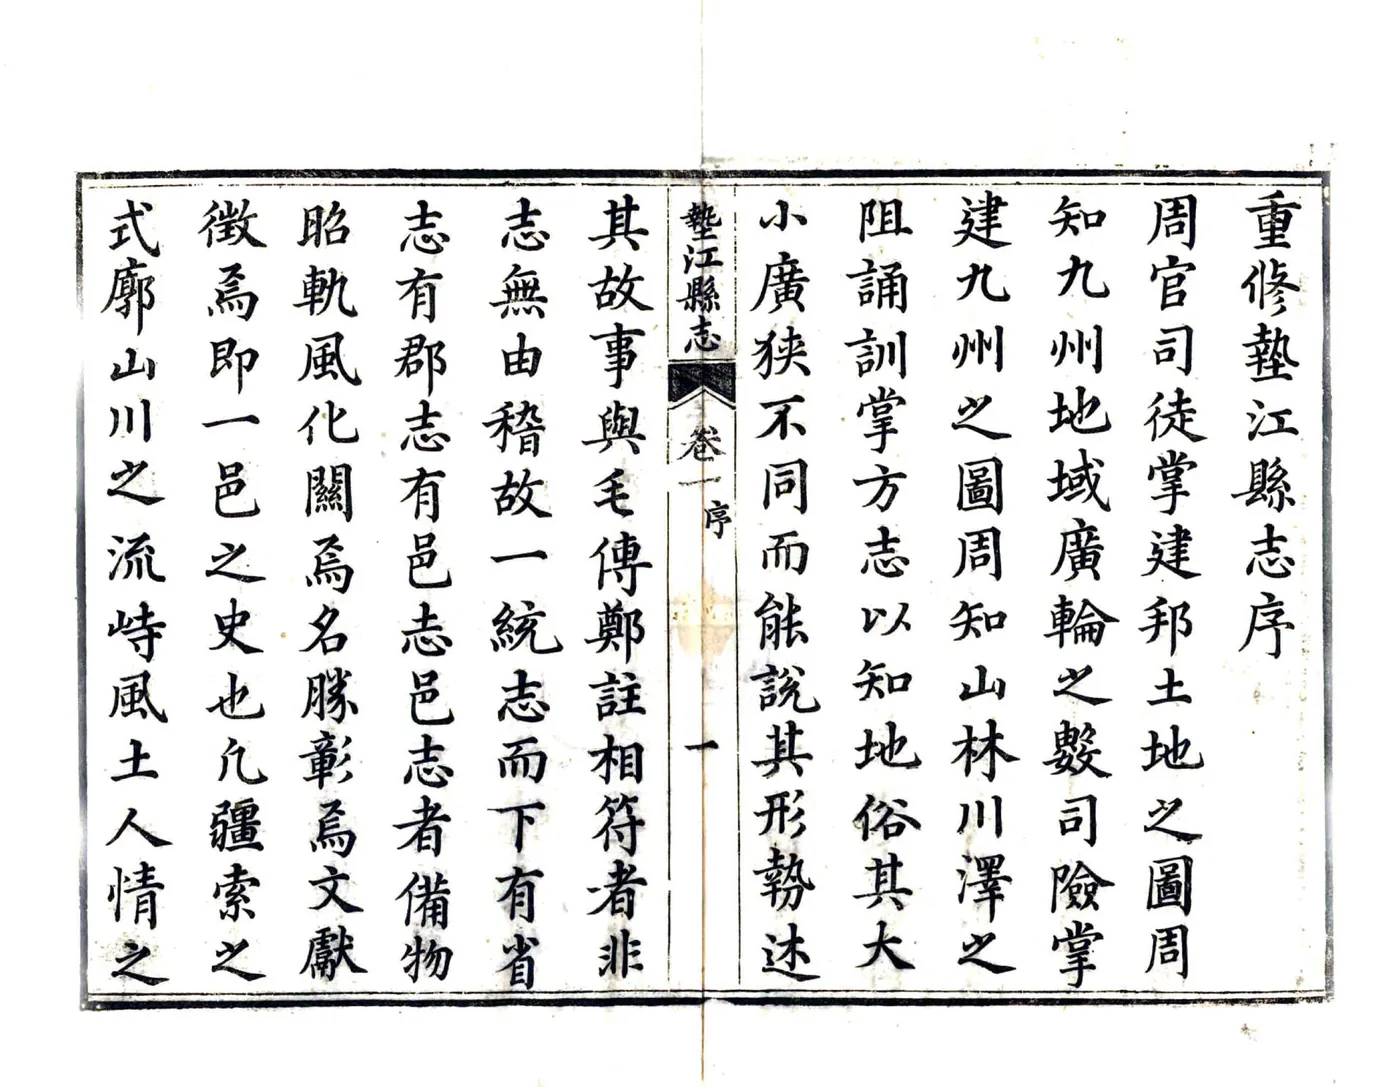 重修墊江縣志序
周官司徒掌建邦土地之圖周
知九州地域廣輪之數司險掌
建九州之圖周知山林川澤之
阻誦訓掌方志以知地俗其大
小廣狹不同而能說其形勢述
墊江縣志
卷一
序
一
其故事與毛傳鄭註相符者非
志無由稽故一統志而下有省
志有郡志有邑志邑志者備物
昭軌風化關焉名勝彰焉文獻
徵焉即一邑之史也凡疆索之
式廓山川之流峙風土人情之